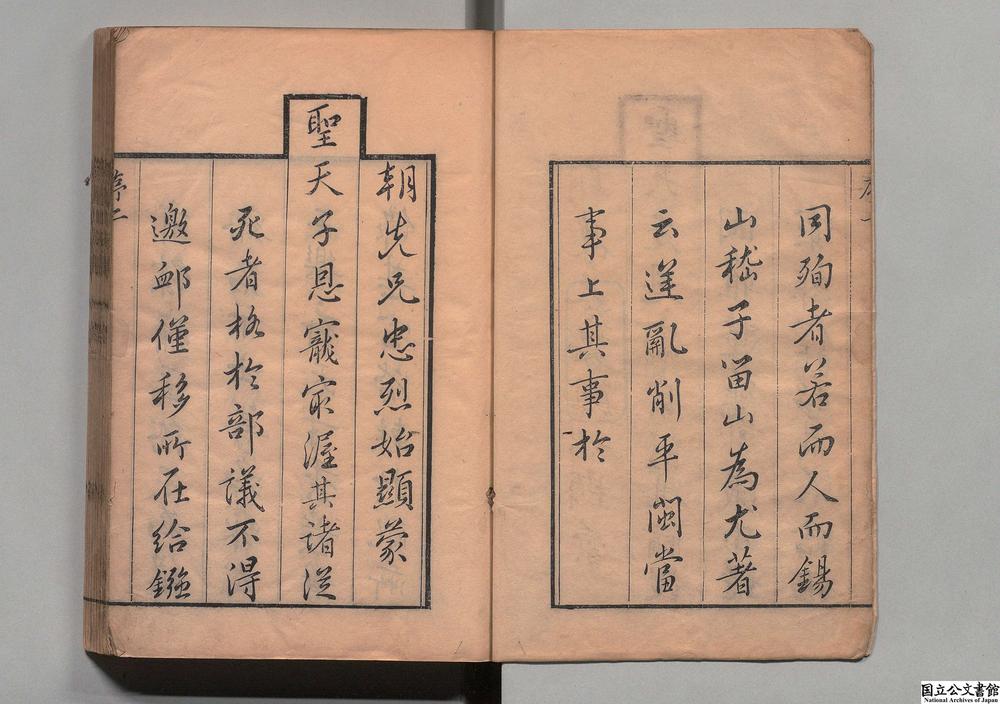 同殉者若而人而錫
山嵇子留山為尤著
云逆亂削平閩當
事上其事於
朝先兄忠烈始顯蒙
聖天子恩寵㝡渥其諸從
死者格於部議不得
邀卹僅移所在給鏹
序二
国立公文書館
National Archives of Japan